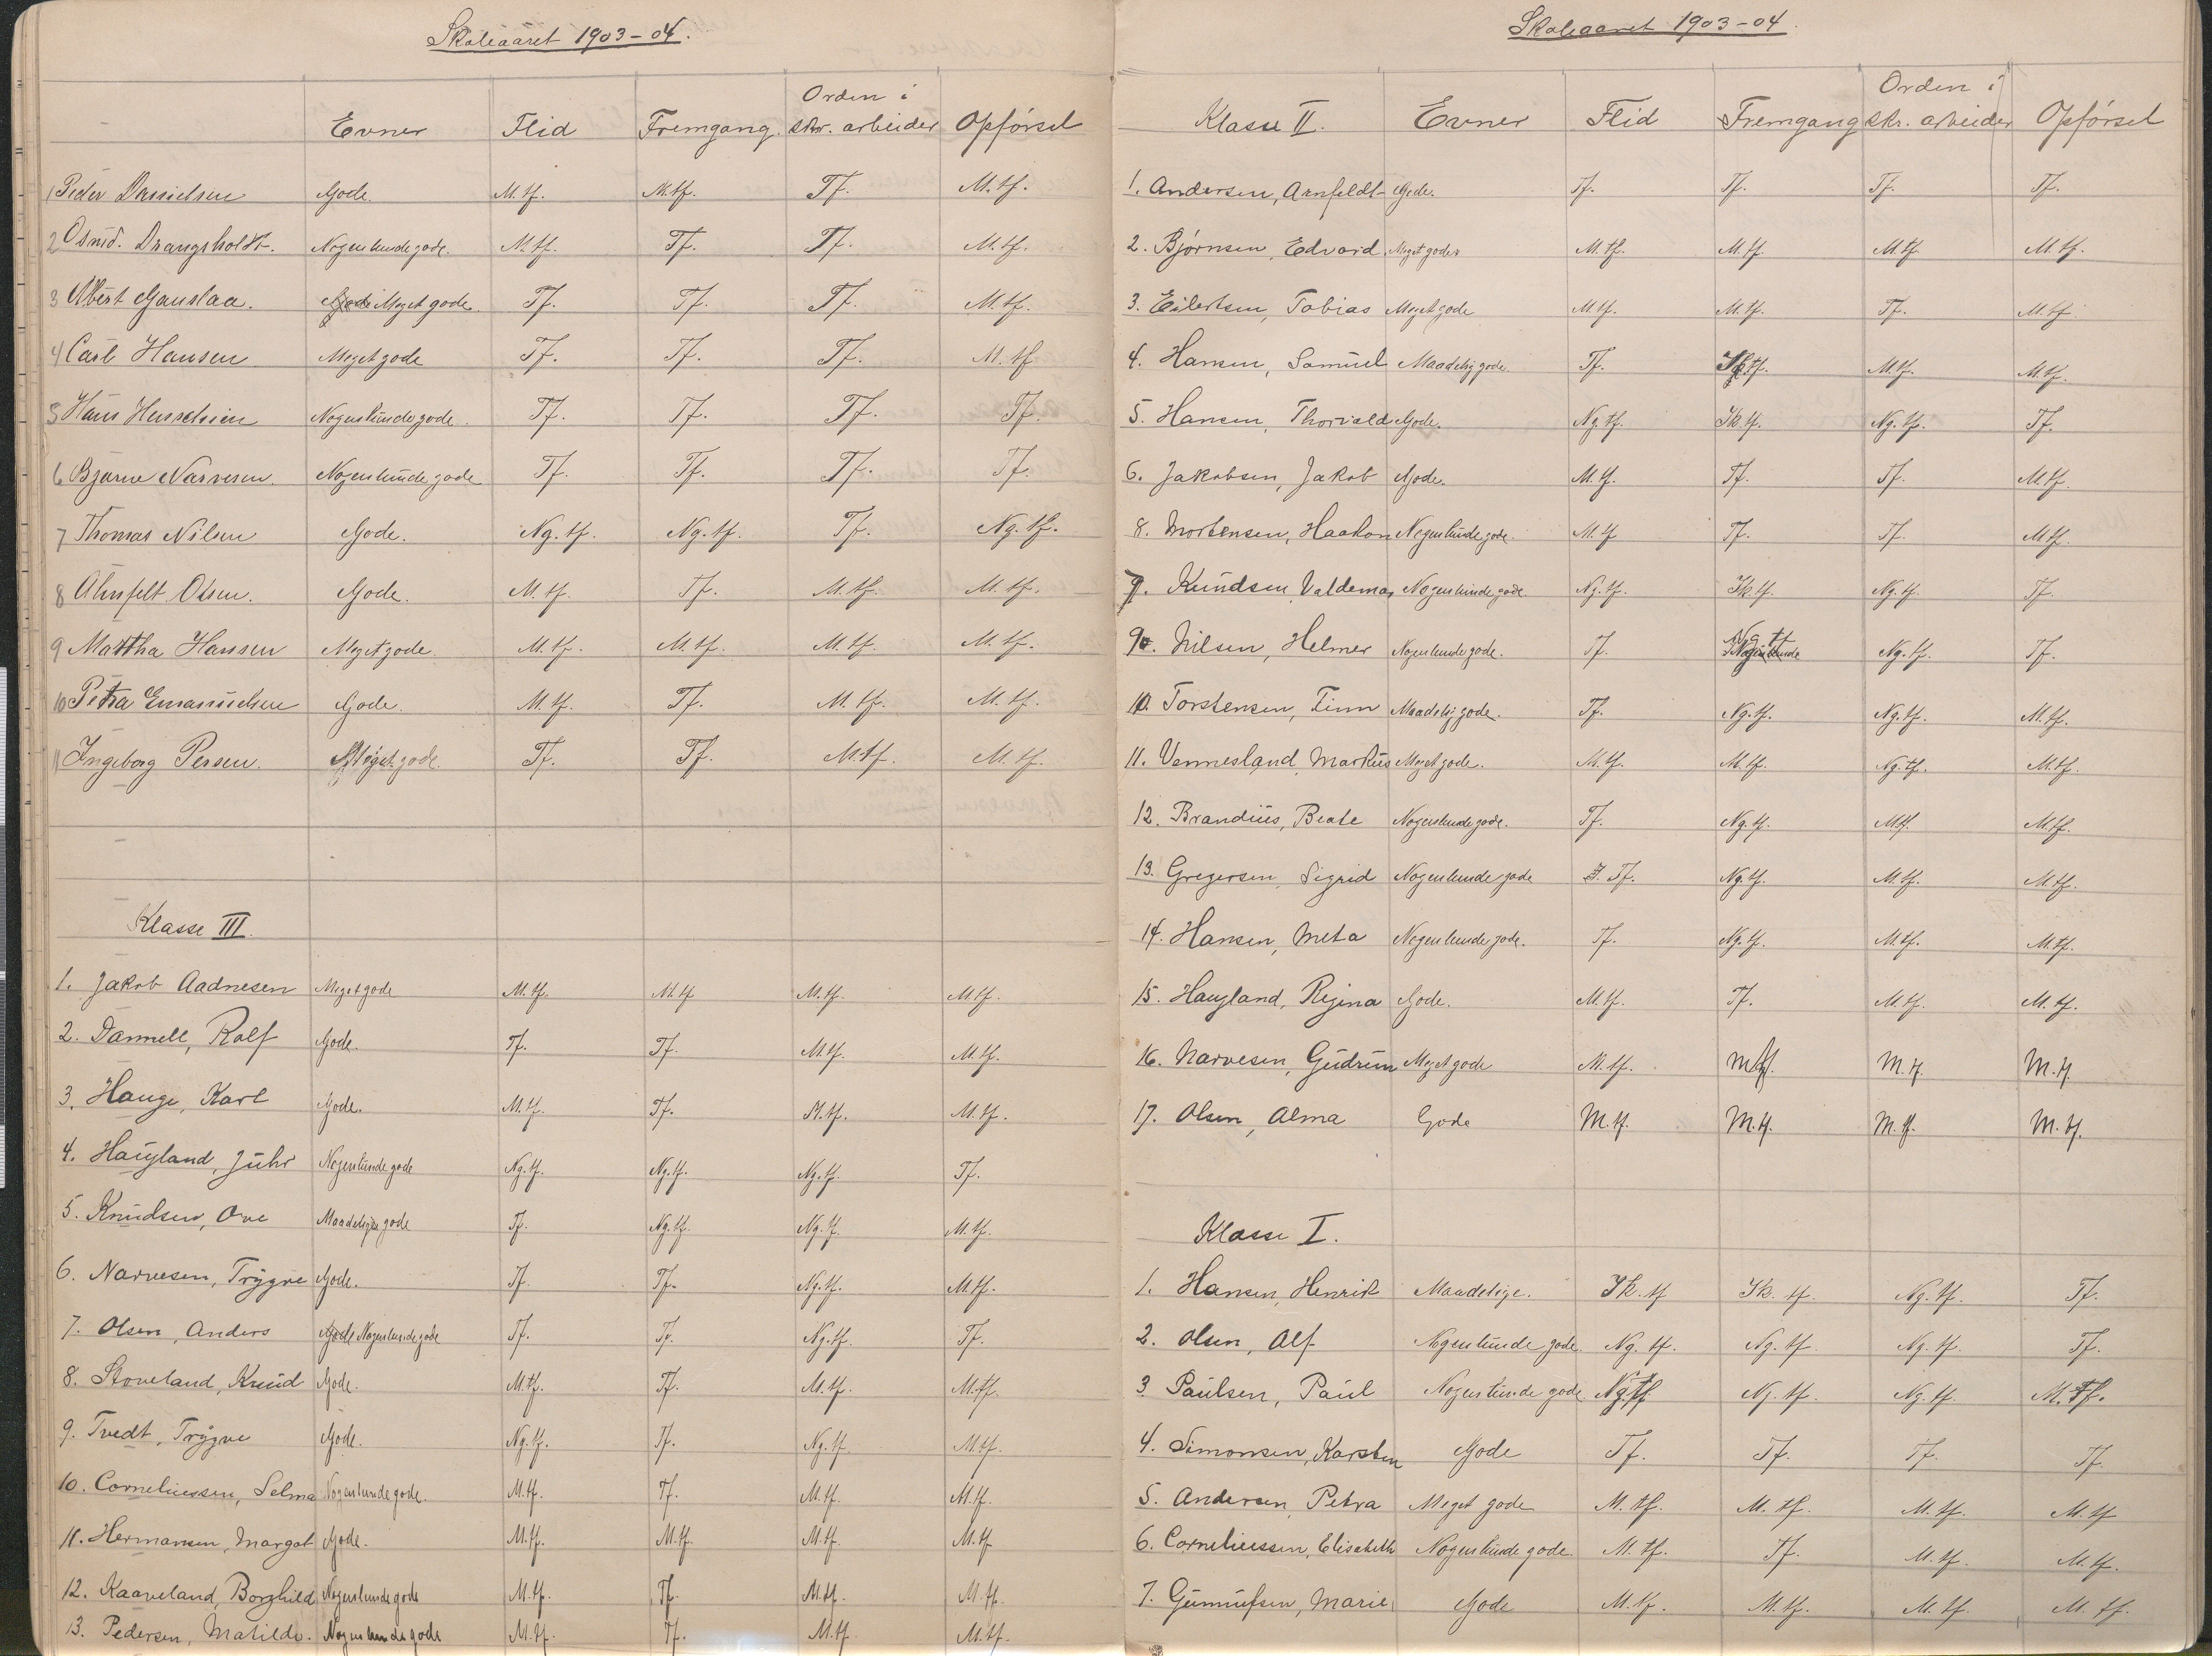 Skoleaaret 1903-04.
Evner Flid Fremgang. Orden i skr. arbeider Opførsel
1 Peder Danielsen Gode. M.tf. M.tf. Tf. M.tf.
2 Osmd. Drangsholdt. Nogenlunde gode. M.tf. Tf. Tf. M.tf.
3 Albert Gauslaa. Meget gode Tf. Tf. Tf. M.tf.
4 Carl Hansen Meget gode Tf. Tf. Tf. M.tf
5 Hans Nogenlunde gode. Tf. Tf. Tf. Tf.
6 Bjarne Narvesen. Nogenlunde gode Tf. Tf. Tf. Tf.
7 Thomas Nilsen Gode. Ng.tf. Ng.tf. Tf. Ng.tf.
8 Ahnfelt Olsen. Gode. M.tf. Tf. M.tf. M.tf.
9 Martha Hansen Meget gode. M.tf. M.tf. M.tf. M.tf.
10 Petra Emanuelsen Gode. M.tf. Tf. M.tf. M.tf.
11 Ingeborg Persen. Meget gode. Tf. Tf. M.tf. M.tf.
Klasse III.
1. Jakob Aadnesen Meget gode M.tf. M.tf M.tf. M.tf.
2. Dannell, Rolf Gode. Tf. Tf. M.tf. M.tf.
3. Hauge, Karl Gode. M.tf. Tf. M.tf. M.tf.
4. Haugland, Juhr Nogenlunde gode Ng.tf. Ng.tf. Ng.tf. Tf.
5. Knudsen, Ove Maadelig gode Tf. Ng.tf. Ng.tf. M.tf.
6. Narvesen, Trygve Gode. Tf. Tf. Ng.tf. M.tf.
7. Olsen, Anders Gode Nogenlunde gode Tf. Tf. Ng.tf. Tf.
8. Stoveland, Knud Gode. M.tf. Tf. M.tf. M.tf.
9. Tvedt, Trygve Gode. Ng.tf. Tf. Ng.tf. M.tf.
10. Corneliussen, Selma Nogenlunde gode. M.tf. Tf. M.tf. M.tf.
11. Hermansen, Margot Gode. M.tf. M.tf. M.tf. M.tf.
12. Kaaveland, Borghild Nogenlunde gode M.tf. Tf. M.tf. M.tf.
13. Pedersen, Matilde. Nogenlunde gode M.tf. Tf. M.tf. M.tf.
Skoleaaret 1903-04.
Klasse II. Evner Flid Fremgang Orden i skr. arbeider Opførsel
1. Andersen, Arnfeldt Gode. Tf. Tf. Tf. Tf.
2. Bjørnsen, Edvard Meget gode. M.tf. M.tf. M.tf. M.tf.
3. Eilertsen, Tobias Meget gode M.tf. M.tf. Tf. M.tf.
4. Hansen, Samuel Maadelig gode. Tf. tf. M.tf. M.tf.
5. Hansen, Thorvald Gode. Ng.tf. Ik.tf. Ng.tf. Tf.
6. Jakobsen, Jakob Gode. M.tf. Tf. Tf. M.tf.
8. Mortensen, Haakon Nogenlunde gode. M.tf Tf. Tf. M.tf.
7. Knudsen, Valdemar Nogenlunde gode. Ng.tf. Ik.tf. Ng.tf. Tf.
9. Nilsen, Helmer Nogenlunde gode. Tf. Ng tf Nogenlunde Ng.tf. Tf.
10. Torstensen, Finn Maadelig gode. Tf. Ng.tf. Ng.tf. M.tf.
11. Vennesland, Markus Meget gode. M.tf. M.tf. Ng.tf. M.tf.
12. Brandius, Beate Nogenlunde gode. Tf. Ng.tf. M.tf. M.tf.
13. Gregersen, Sigrid Nogenlunde gode Tf. Ng.tf. M.tf. M.tf.
14. Hansen, Meta Nogenlunde gode. Tf. Ng.tf. M.tf. M.tf.
15. Haugland, Regina Gode. M.tf. Tf. M.tf. M.tf.
16. Narvesen, Gudrun Meget gode M.tf. M.tf. M.tf. M.tf
17. Olsen, Alma Gode M.tf. M.tf. M.tf. M.tf.
Klasse I.
1. Hansen, Henrik Maadelige. Ik.tf Ik.tf. Ng.tf. Tf.
2. Olsen, Alf Nogenlunde gode. Ng.tf. Ng.tf. Ng.tf. Tf.
3. Paulsen, Paul Nogenlunde gode Ng.tf Ng.tf. Ng.tf. M.tf.
4. Simonsen, Karsten Gode Tf. Tf. Tf. Tf.
5. Andersen, Petra Meget gode M.tf. M.tf. M.tf. M.tf
6. Corneliussen, Elisabeth Nogenlunde gode. M.tf. Tf. M.tf. M.tf.
7. Gunnufsen, Marie Gode M.tf. M.tf. M.tf. M.tf.